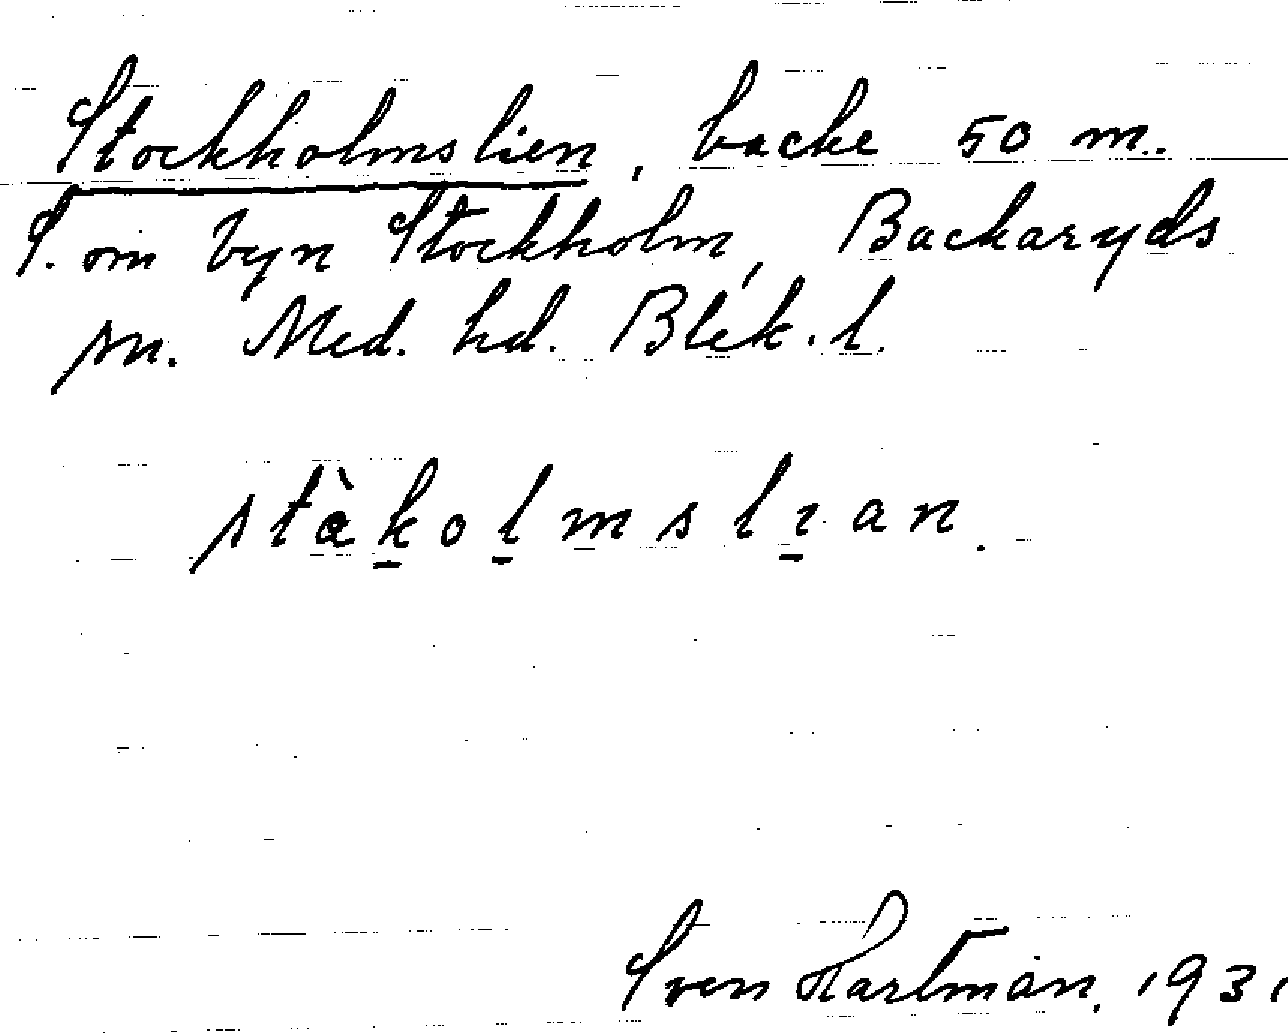 Stockholmslien, backe 50 m.
S. om byn Stockholm, Backaryds
sn. Med. hd. Blek. l.
stàkolmslıan.
Sven Hartman, 1931